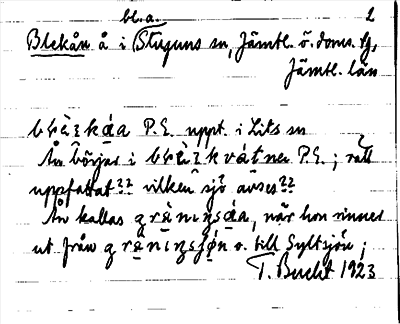 bl.a. 2
Blekån å i Stuguns sn, Jämtl. ö. doms. tg,
Jämtl. län
P.E. uppt. i Lits sn
Ån börjar i P.E.; rätt
uppfattat?? vilken sjö avses??
Ån kallas gräningsåa, när hon rinner
ut från o. till Syltsjön;
T. Bucht 1923